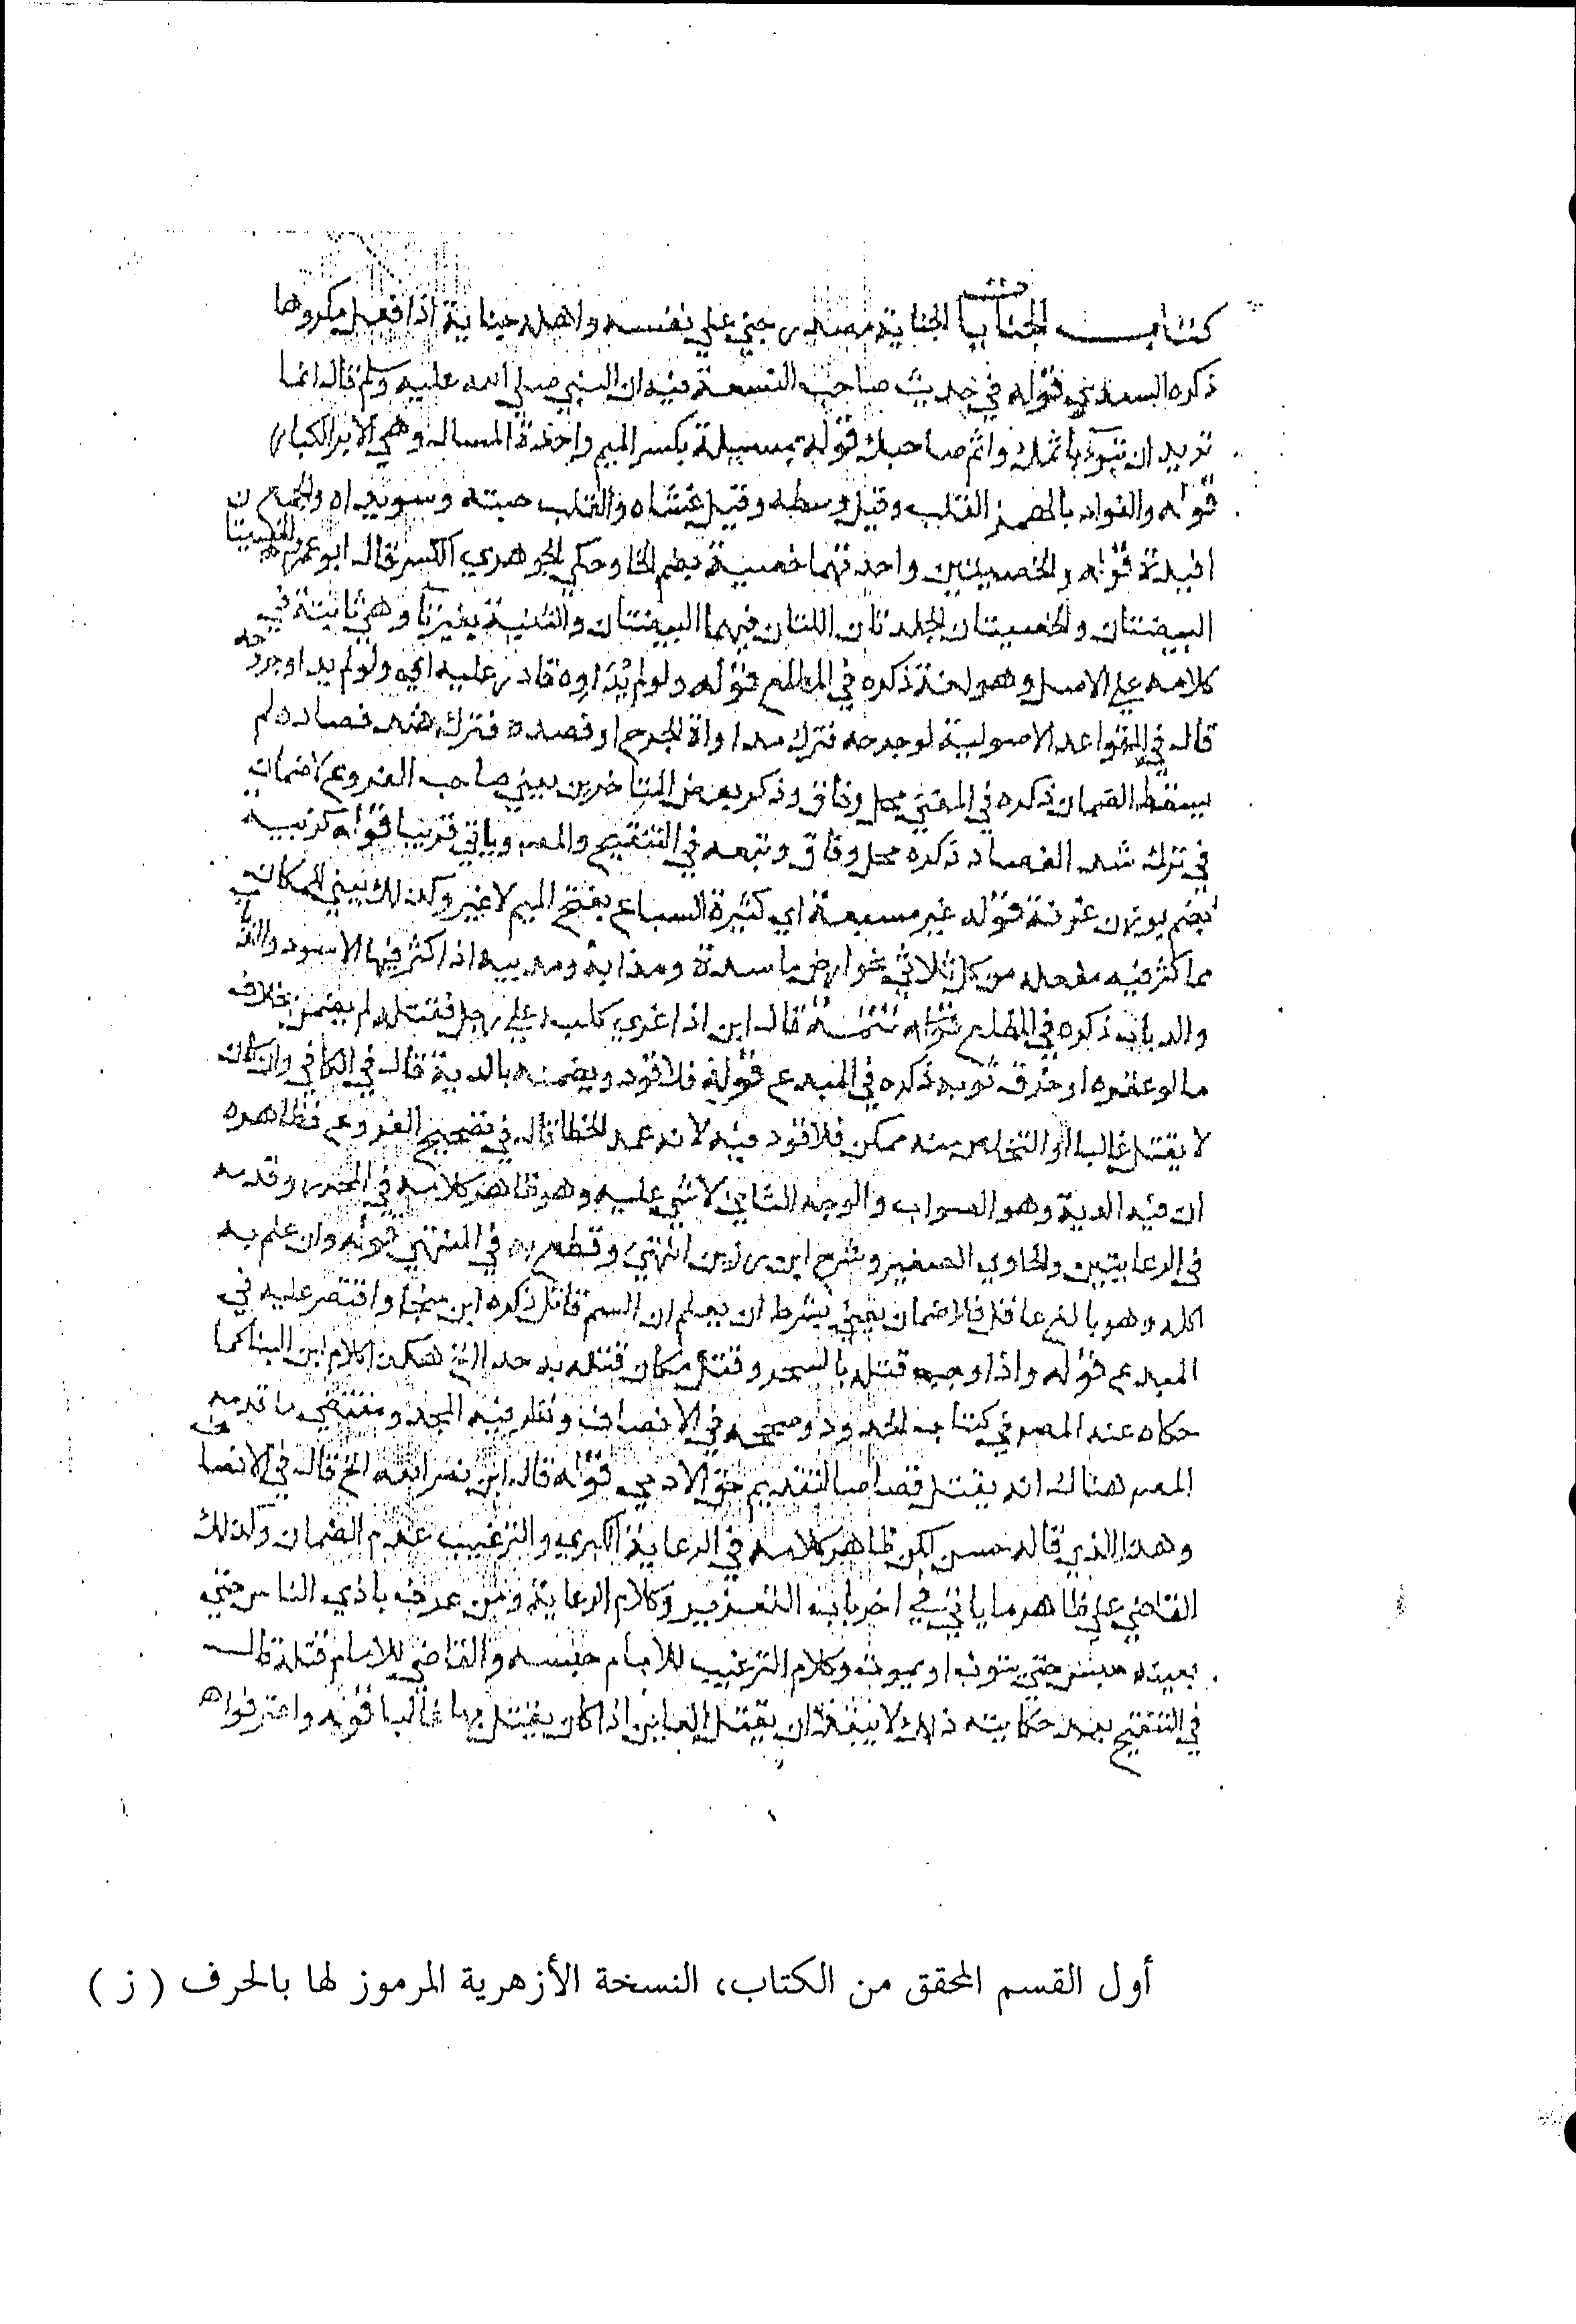 كتاب الجنايات الجناية مصدر جني علي نفسه واهله جناية اذا فعل مكروها
ذكره السعدي قوله في حديث صاحب النسعة فيه ان النبي صلي الله عليه وسلم قال اما
تريد ان تبوء باثمك واثم صاحبك قوله بمسلة بكسر الميم واحدة المسال وهي الابر الكبار
قوله والفواد بالهمز القلب وقيل وسطه وقيل غشاه والقلب حبته وسويداه والجمع
افيدة قوله والخصيتين واحدتهما خصية بضم الخا وحكي الجوهري الكسر قال ابو عمرو الخصيتان
البيضتان والخصيتان الجلدتان اللتان فيهما البيضتان والتثنية بغير تا وهي ثابتة في
كلامه علي الاصل وهو لغة ذكره في المطلع قوله ولو لم يداوه قادر عليه اي ولو لم يداو جرحه
قال في القواعد الاصولية لو جرحه فترك مداواة الجرح او فصده فترك شد فصاده لم
يسقط الضمان ذكره في المغني محل وفاق وذكر بعض المتاخرين يعني صاحب الفروع لا ضمان
في ترك شد الفصاد ذكره محل وفاق وتبعه في التنقيح والمصـ وياتي قريبا قوله كزبية
بضم بوزن غرفة قوله غير مسبعة اي كثيرة السباع بفتح الميم لا غير وكذلك يبني للمكان
مما كثر فيه مفعله من كل ثلاثي نحو ارض ماسدة ومذابة ومدببه اذا كثر فيها الاسود والذئاب
والدباب ذكره في المطلع قوله قال ابن اذا اغري كلبا علي رجل فقتله لم يضمن بخلاف
ما لو عقره او خرق ثوبه ذكره في المبدع قوله فلا قود ويضمنه بالدية قال في الكافي وان كان
لا يقتل غالبا او التخلص منه ممكن فلا قود فيه لانه عمد الخطا قال في تصحيح الفروع فظاهره
ان فيه الدية وهو الصواب والوجه الثاني لا شي عليه وهو ظاهر كلامه في المحرر وقدمه
في الرعايتين والحاوي الصغير وشرح ابن رزين انتهي وقطع به في المنتهي قوله وان علم به
اكله وهو بالغ عاقل فلا ضمان يعني بشرط ان يعلم ان السم قاتل ذكره ابن منجا واقتصر عليه في
المبدع قوله واذا وجب قتله بالسحر وقتل كان قتله به حدا الخ هكذا كلام ابن البنا كما
حكاه عنه المصـ في كتاب الحدود وصححه في الانصاف ونقل فيه المجد ومقتضي ما قدمه
المصـ هناك انه يقتل قصاصا لتقديم حق الادمي قوله قال ابن نصر الله الخ قال في الانصاف
وهذا الذي قاله حسن لكن ظاهر كلامه في الرعاية الكبري والترغيب عدم الضمان وكذلك
القاضي علي ظاهر ما ياتي في اخر باب التعزير وكلام الرعاية ومن عرف باذي الناس حتي
بعينه حبس حتي يتوب او يموت وكلام الترغيب للامام حبسه والقاضي للامام قتله قال
في التنقيح بعد حكايته ذلك لا ينفذ ان يقتل العاين اذا كان يقتل بها غالبا قوله واعترفوا
أول القسم المحقق من الكتاب، النسخة الأزهرية المرموز لها بالحرف ( ز )